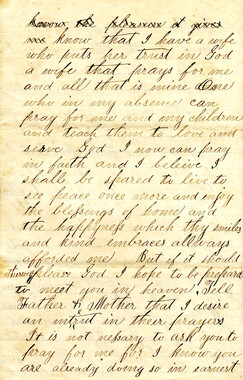 know that I have a wife
who puts her trust in God
a wife that prays for me
and all that is mine One
who in my absence can
pray for me and my children
and teach them to love and
serve God. I now can pray
in faith and I beleive I
shall be spared to live to
see peace once more and enjoy
the blessings of home and
the happiness which thy smiles
and kind embraces allways
afforded me. But if it should
otherwise please God I hope to be prepared
to meet you in heaven. Tell
Father & Mother that I desire
an in their prayers
It is not nessary to ask you to
pray for me for I know you
are already doing so in earnest